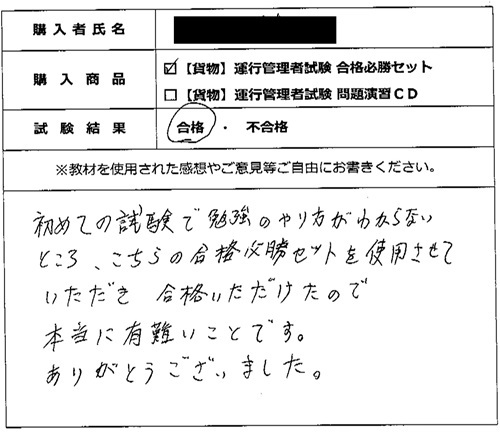 購入者氏名
購入商品
☑【貨物】運行管理者試験 合格必勝セット
☐【貨物】運行管理者試験 問題演習CD
試験結果
合格 ・ 不合格
※教材を使用された感想やご意見等ご自由にお書きください。
初めての試験で勉強のやり方がわからない
ところ、こちらの合格必勝セットを使用させて
いただき 合格いただけたので
本当に有難いことです。
ありがとうございました。